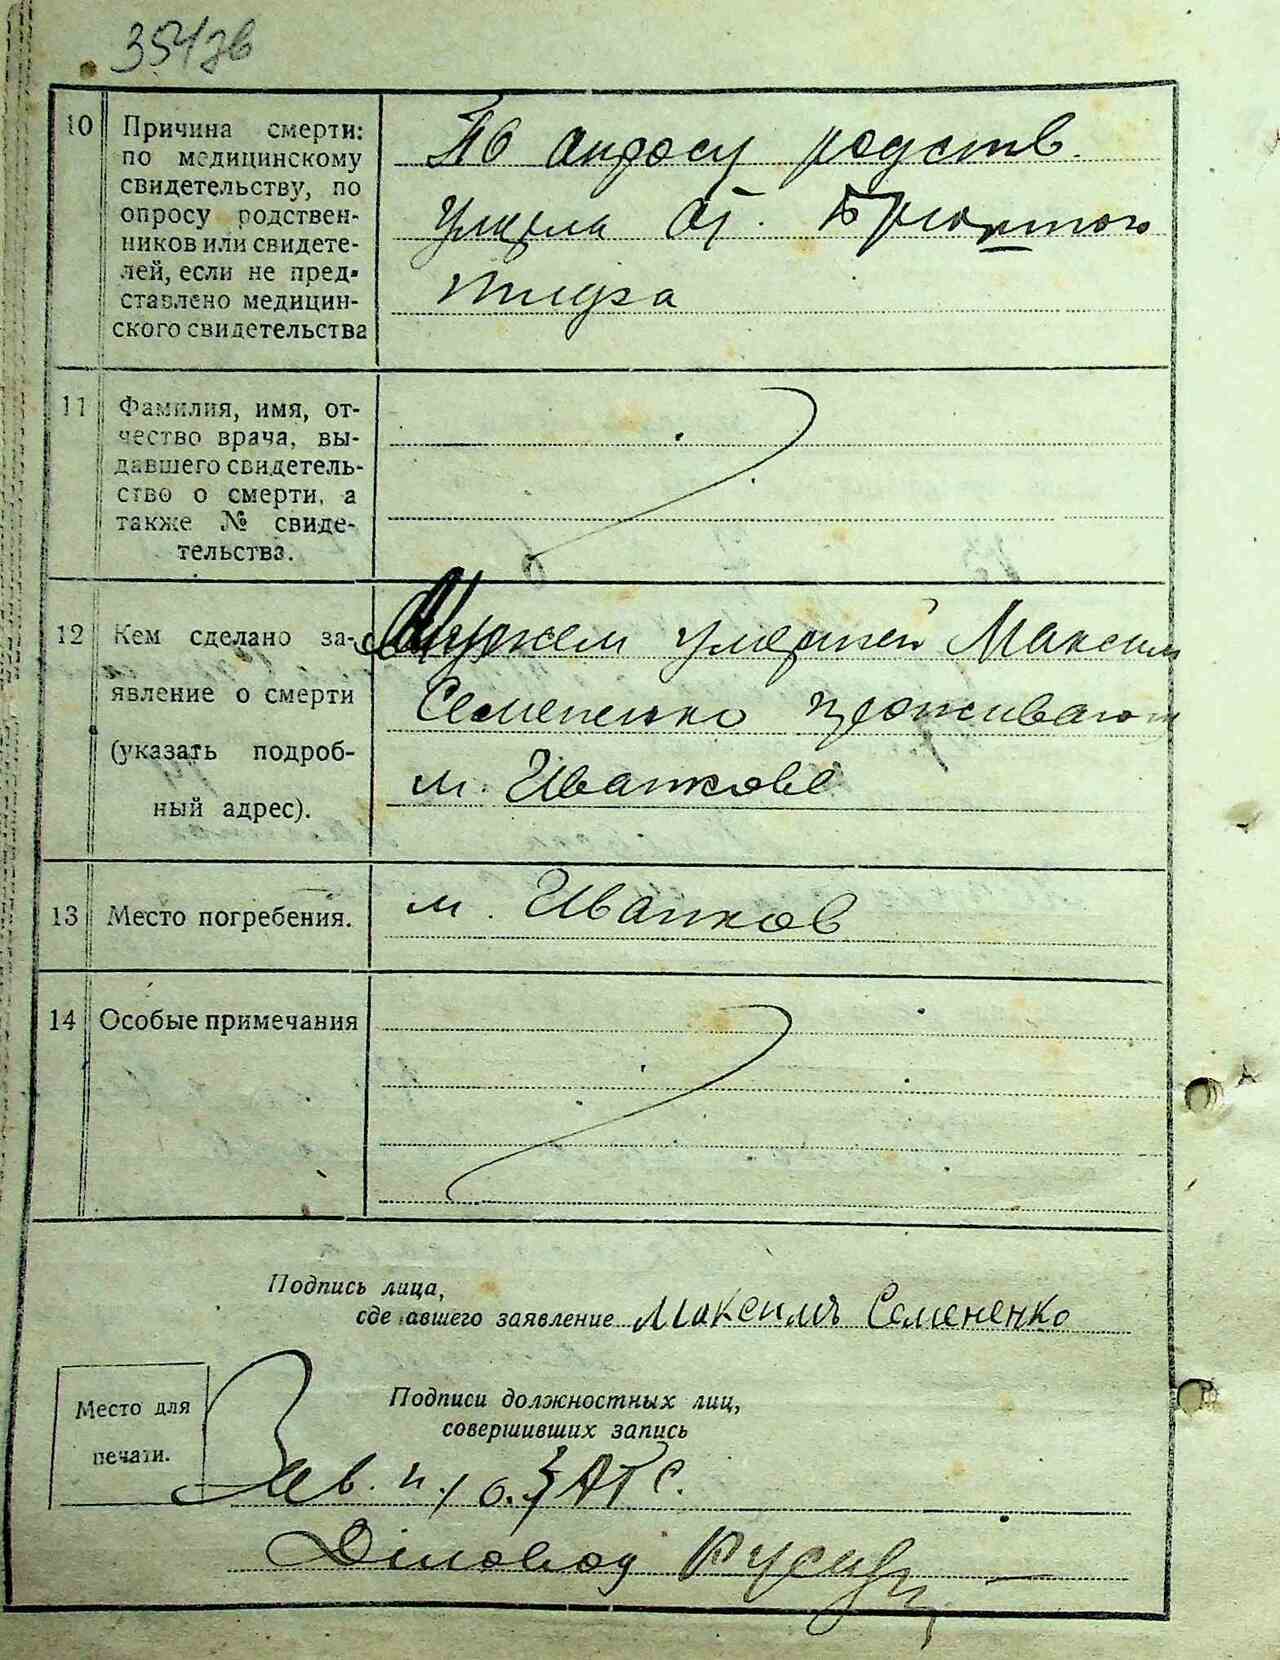 354 зв
10 Причина смерти:
по медицинскому
свидетельству, по
опросу родствен-
ников или свидете-
лей, если не пред-
ставлено медицин-
ского свидетельства
По опросу родств.
умерла от Брюшного
тифа
11 Фамилия, имя, от-
чество врача, вы-
давшего свидетель-
ство о смерти, а
также № свиде-
тельства.
12 Кем сделано за-
явление о смерти
(указать подроб-
ный адрес).
Мужем умершей Максим
Семененко проживающ
м. Иванкове
13 Место погребения.
м. Иванков
14 Особые примечания
Подпись лица,
сделавшего заявление Максимъ Семененко
Место для
печати.
Подписи должностных лиц,
совершивших запись
Зав. ЗАГС.
Діловод